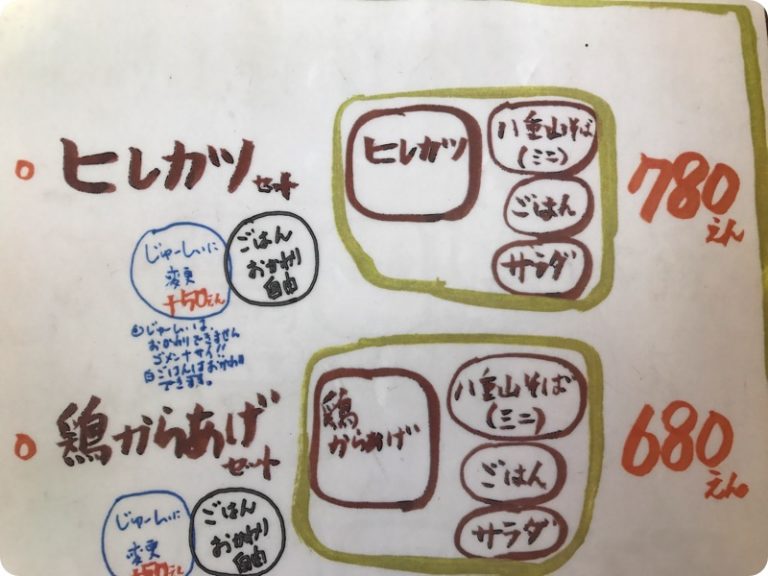 ヒレカツセット
ヒレカツ
八重山そば
(ミニ)
ごはん
サラダ
780えん
じゅーしぃに
変更
+50えん
ごはん
おかわり
自由
じゅーしぃは、
おかわりできません
ゴメンナサイ!!
白ごはんはおかわり
できます。
鶏からあげ
セット
鶏
からあげ
八重山そば
(ミニ)
ごはん
サラダ
680えん。
じゅーしぃに
変更
+50えん
ごはん
おかわり
自由